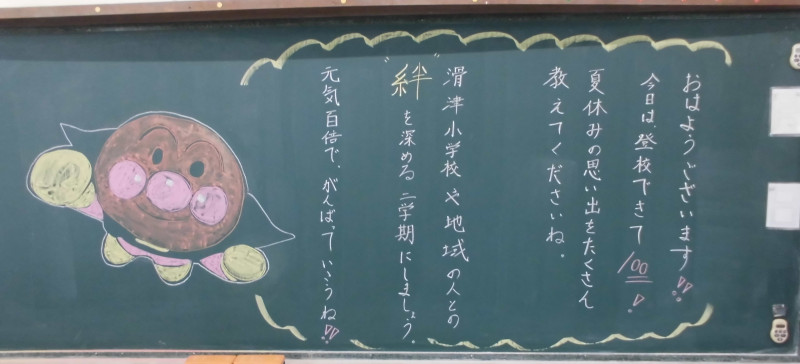 おはようございます!!
今日は、登校できて100!
夏休みの思い出をたくさん
教えてくださいね。
滑津小学校や地域の人との
"絆"を深める二学期にしましょう。
元気百倍で、がんばっていこうね!!